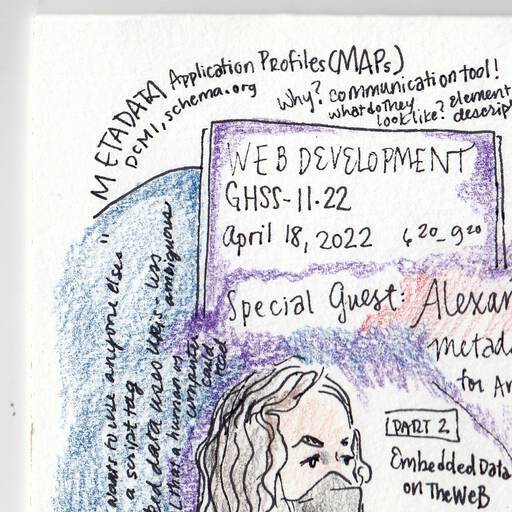 METADATA Application Profiles (MAPs)
DCMI, schema.org
Why? communication tool!
what do they
look like? element
descrip
WEB DEVELOPMENT
GHSS-11.22
April 18, 2022 6:20-9:20
Special Guest: Alexan
metada
for Ar
PART 2
Embedded Data
on The WeB
wants to use anyone else's"
a script tag
bed data uses URIs - less
ambiguous
(that a human or
computer
could
read